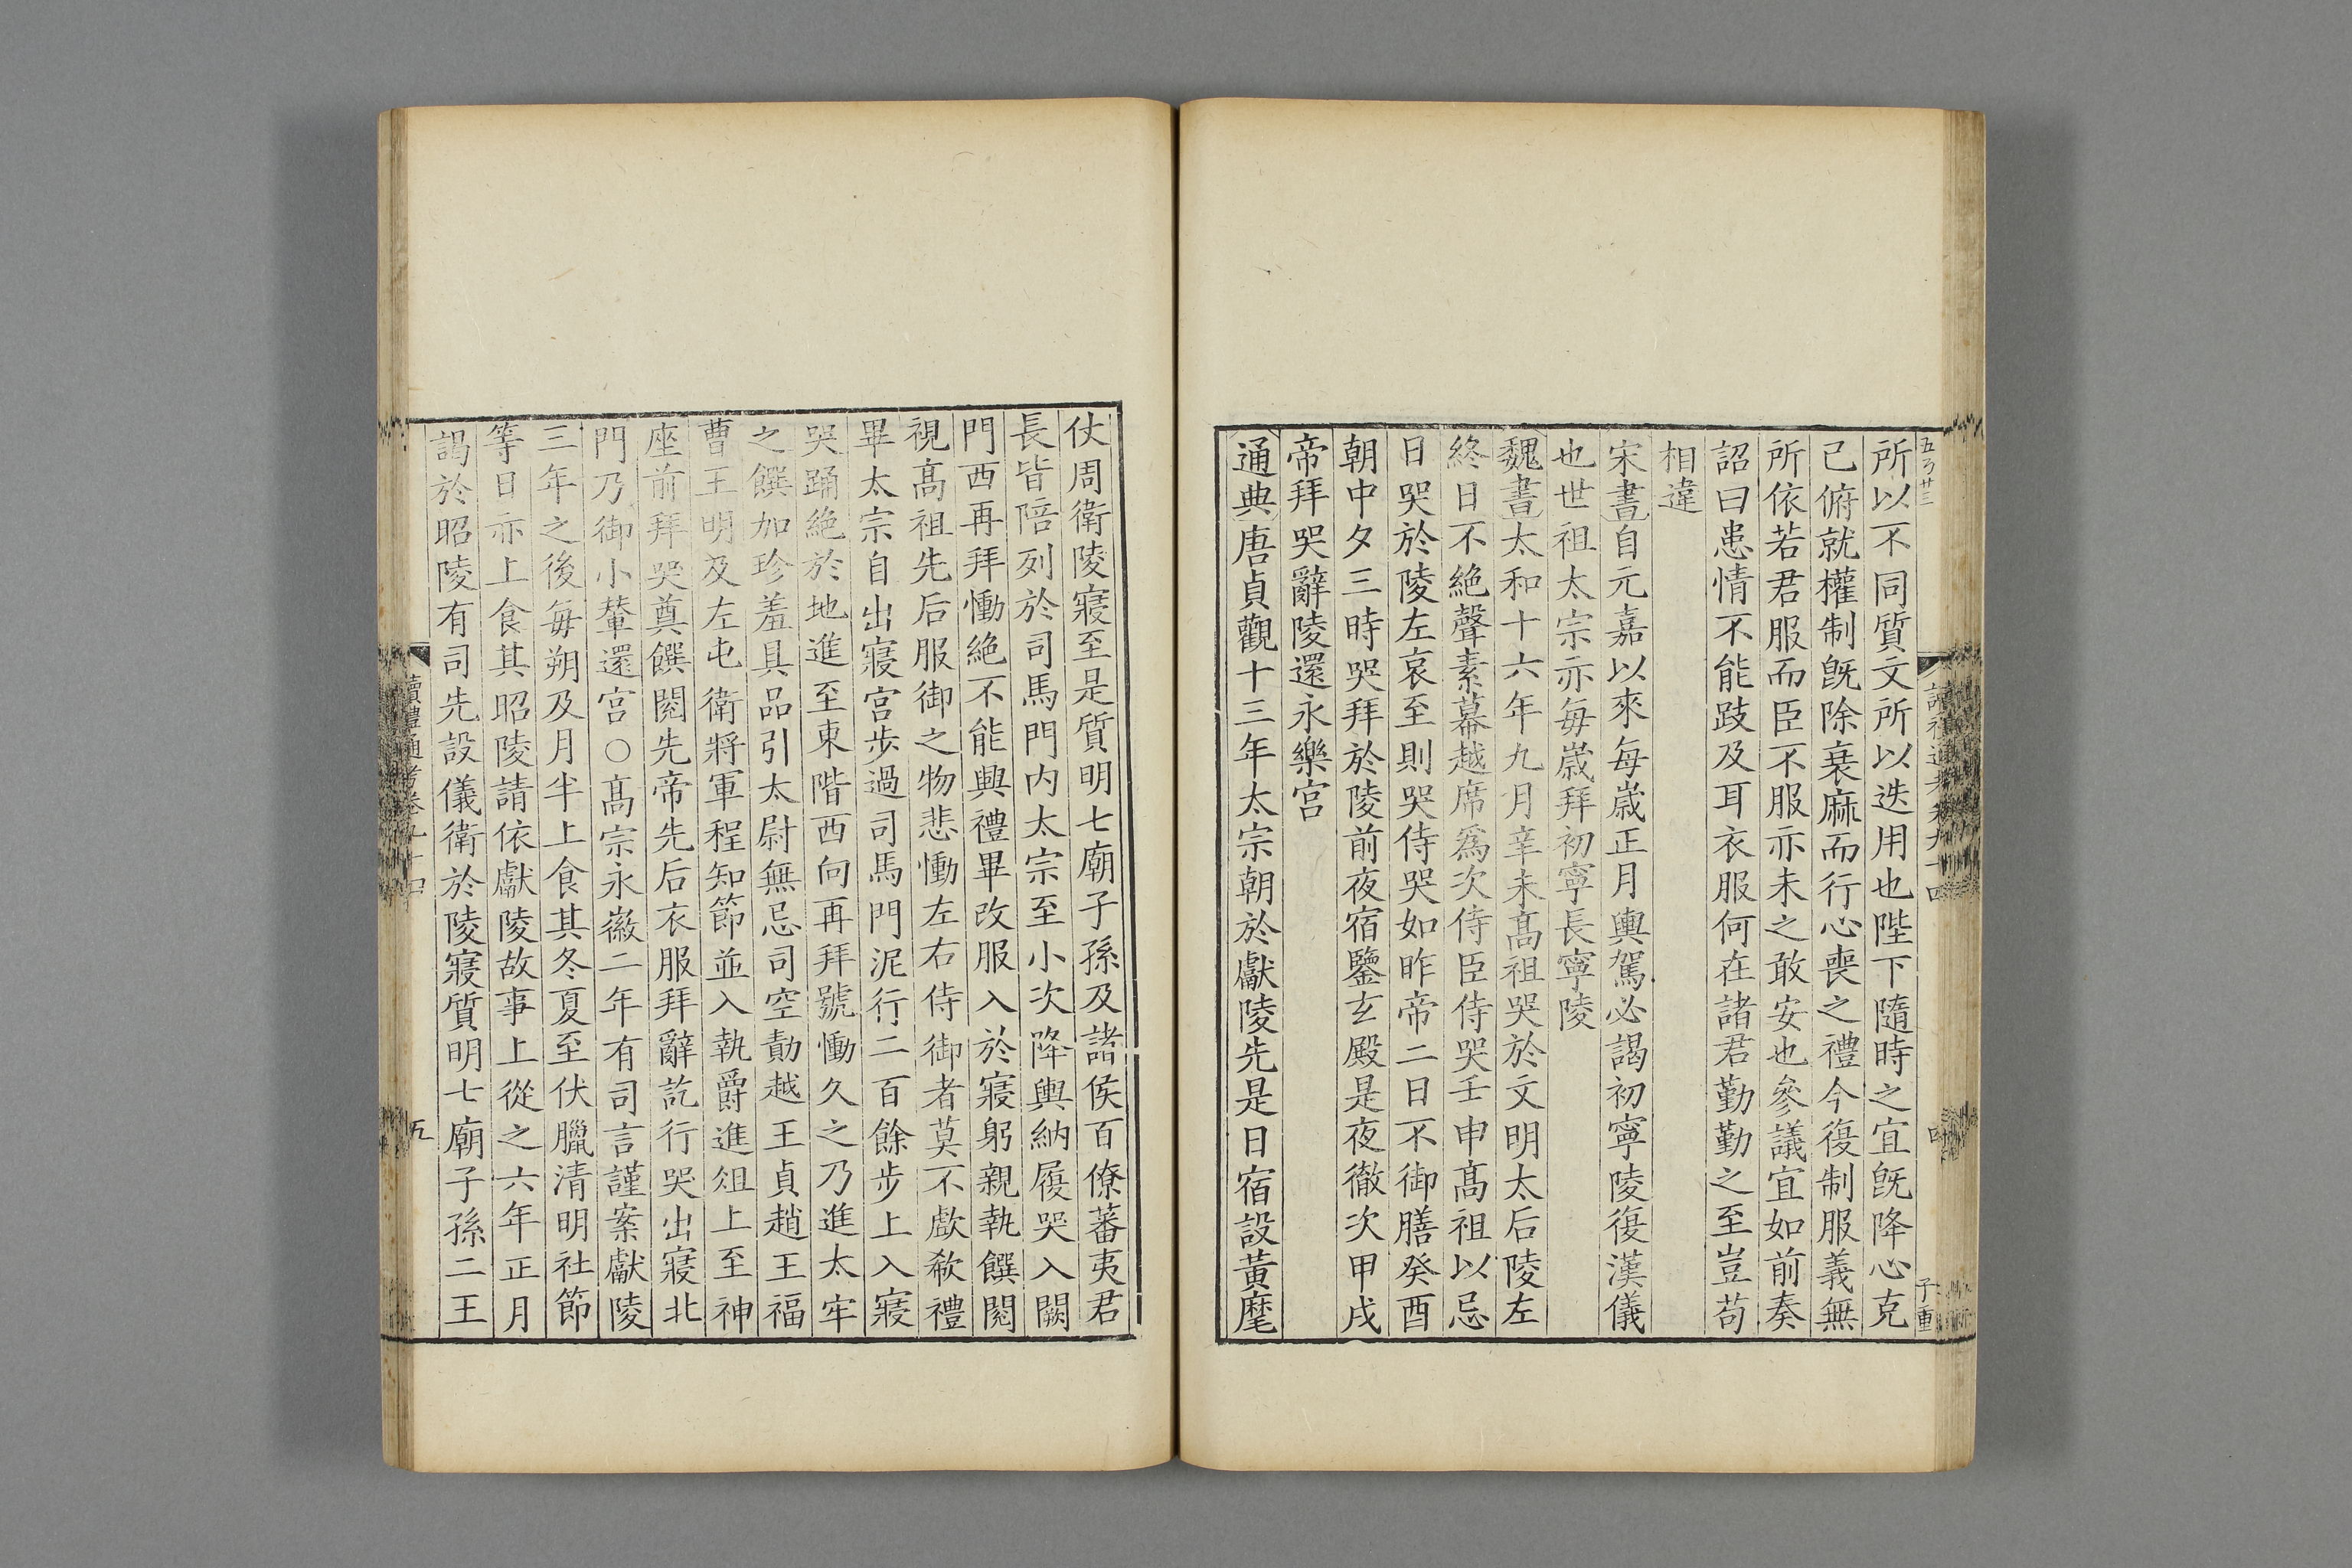 所以不同質文所以迭用也陛下隨時之宜旣降心克
己俯就權制旣除衰麻而行心喪之禮今復制服義無
所依若君服而臣不服亦未之敢安也參議宜如前奏
詔曰患情不能跂及耳衣服何在諸君勤勤之至豈苟
相違
宋書自元嘉以來每歲正月輿駕必謁初寧陵復漢儀
也世祖太宗亦每歲拜初寧長寧陵
魏書太和十六年九月辛未高祖哭於文明太后陵左
終日不絕聲素幕越席爲次侍臣侍哭壬申高祖以忌
日哭於陵左哀至則哭侍哭如昨帝二日不御膳癸酉
朝中夕三時哭拜於陵前夜宿鑒玄殿是夜徹次甲戌
帝拜哭辭陵還永樂宮
通典唐貞觀十三年太宗朝於獻陵先是日宿設黃麾
仗周衛陵寢至是質明七廟子孫及諸侯百僚蕃夷君
長皆陪列於司馬門内太宗至小次降輿納履哭入闕
門西再拜慟絶不能興禮畢改服入於寢躬親執饌閱
視高祖先后服御之物悲慟左右侍御者莫不歔欷禮
畢太宗自出寢宮步過司馬門泥行二百餘步上入寢
哭踊絶於地進至東階西向再拜號慟久之乃進太牢
之饌加珍羞具品引太尉無忌司空勣越王貞趙王福
曹王明及左屯衛將軍程知節並入執爵進俎上至神
座前拜哭奠饌閱先帝先后衣服拜辭訖行哭出寢北
門乃御小輦還宮○高宗永徽二年有司言謹案獻陵
三年之後每朔及月半上食其冬夏至伏臘清明社節
等日亦上食其昭陵請依獻陵故事上從之六年正月
謁於昭陵有司先設儀衛於陵寢質明七廟子孫二王
讀禮通考卷九十四
五